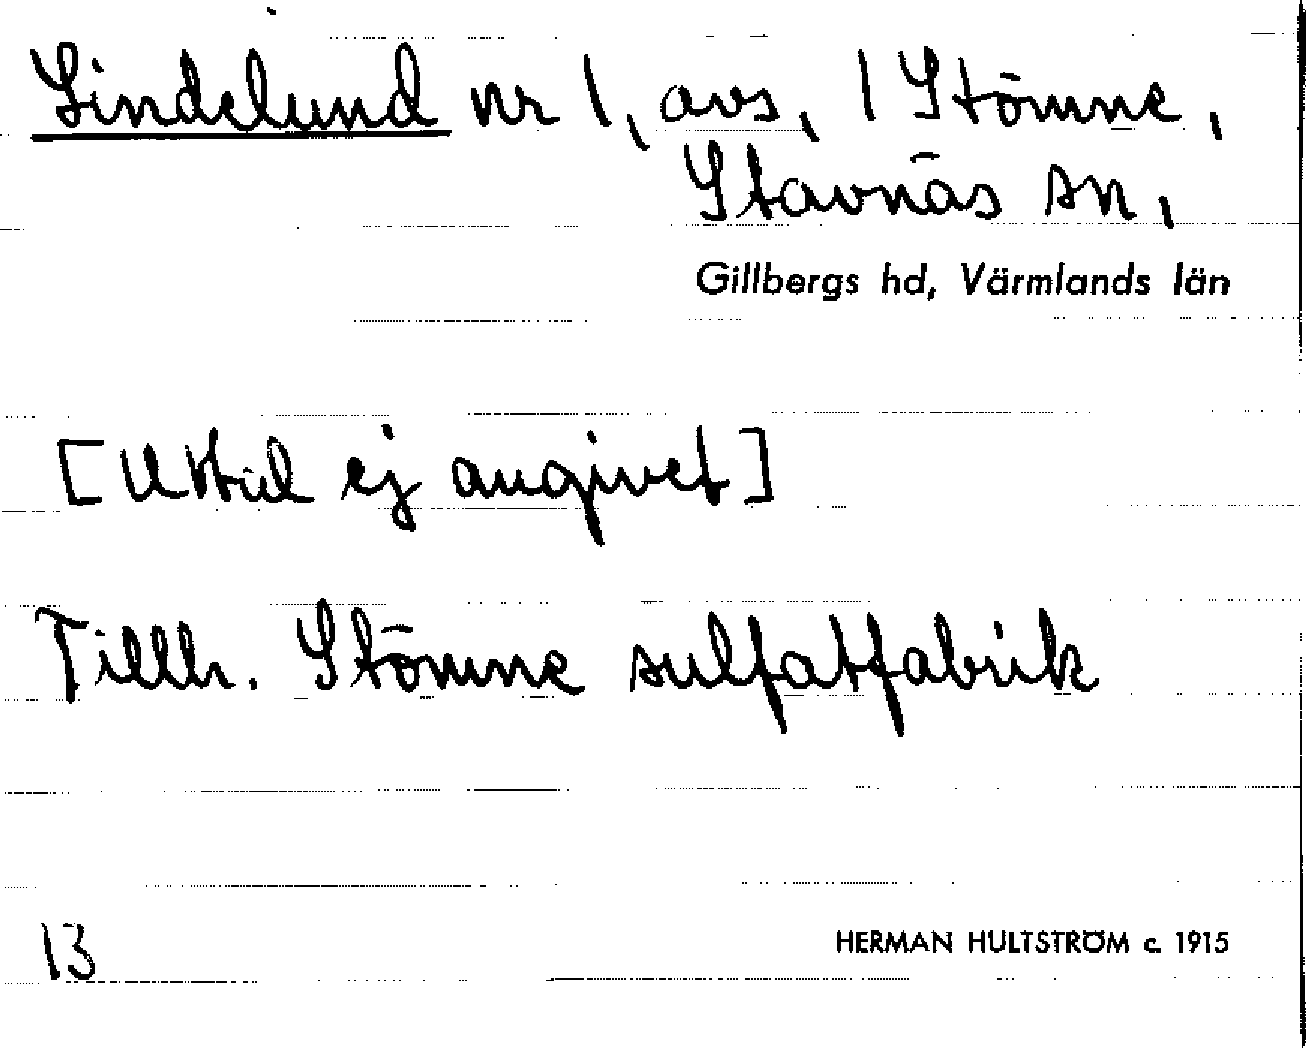 Lindelund nr 1, avs, 1 Stömne,
Stavnäs sn,
Gillbergs hd, Värmlands län
[Uttal ej angivet]
Tillh. Stömne sulfatfabrik
13
HERMAN HULTSTRÖM c. 1915